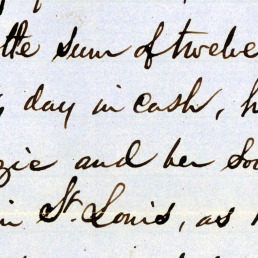 the sum of twelve
day in cash, h
zie and her So
in St. Louis, as